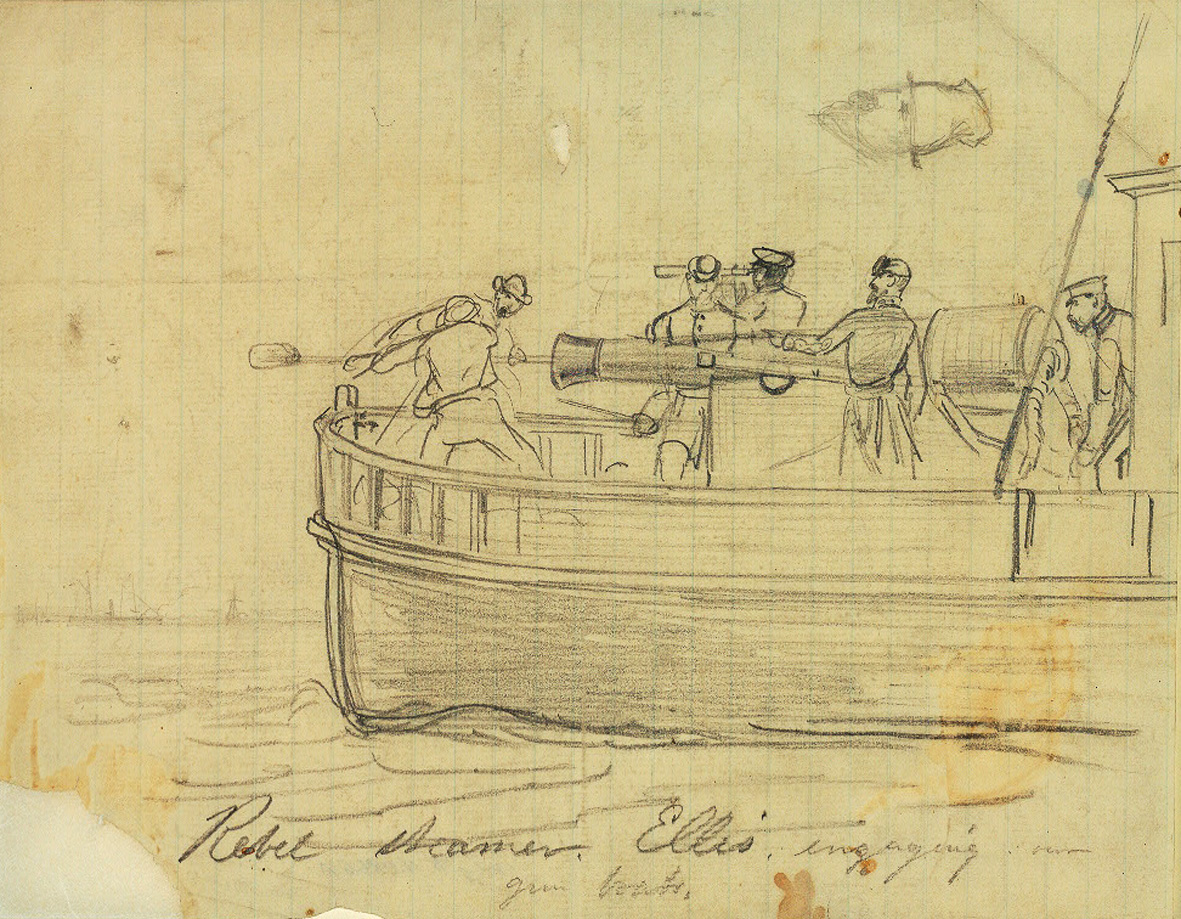 Rebel steamer. Ellis. engaging our
gun boats.